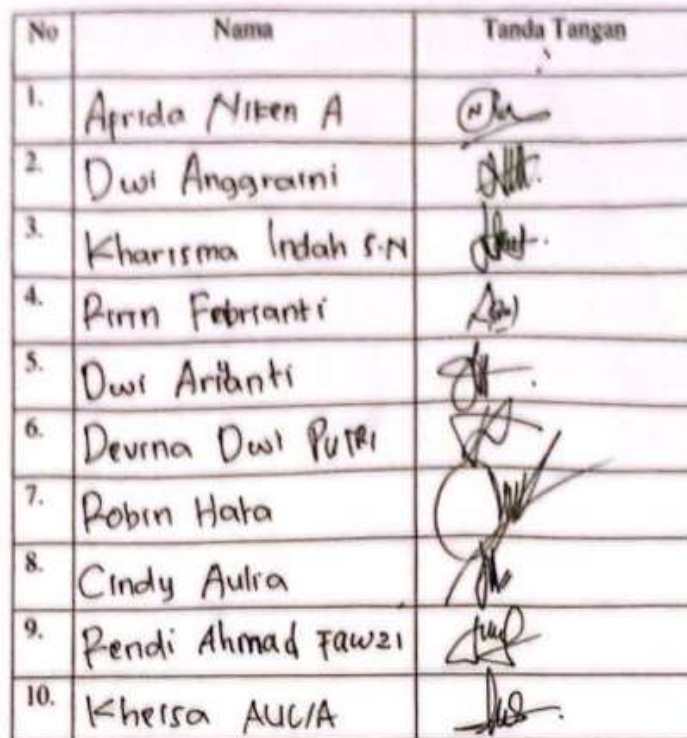 No Nama Tanda Tangan
1. Aprida Niken A
2. Dwi Anggraini
3. Kharisma Indah S.N
4. Ririn Febrianti
5. Dwi Arianti
6. Devina Dwi PUTRI
7. Robin Hata
8. Cindy Aulia
9. Rendi Ahmad Fawzi
10. Kheisa AULIA